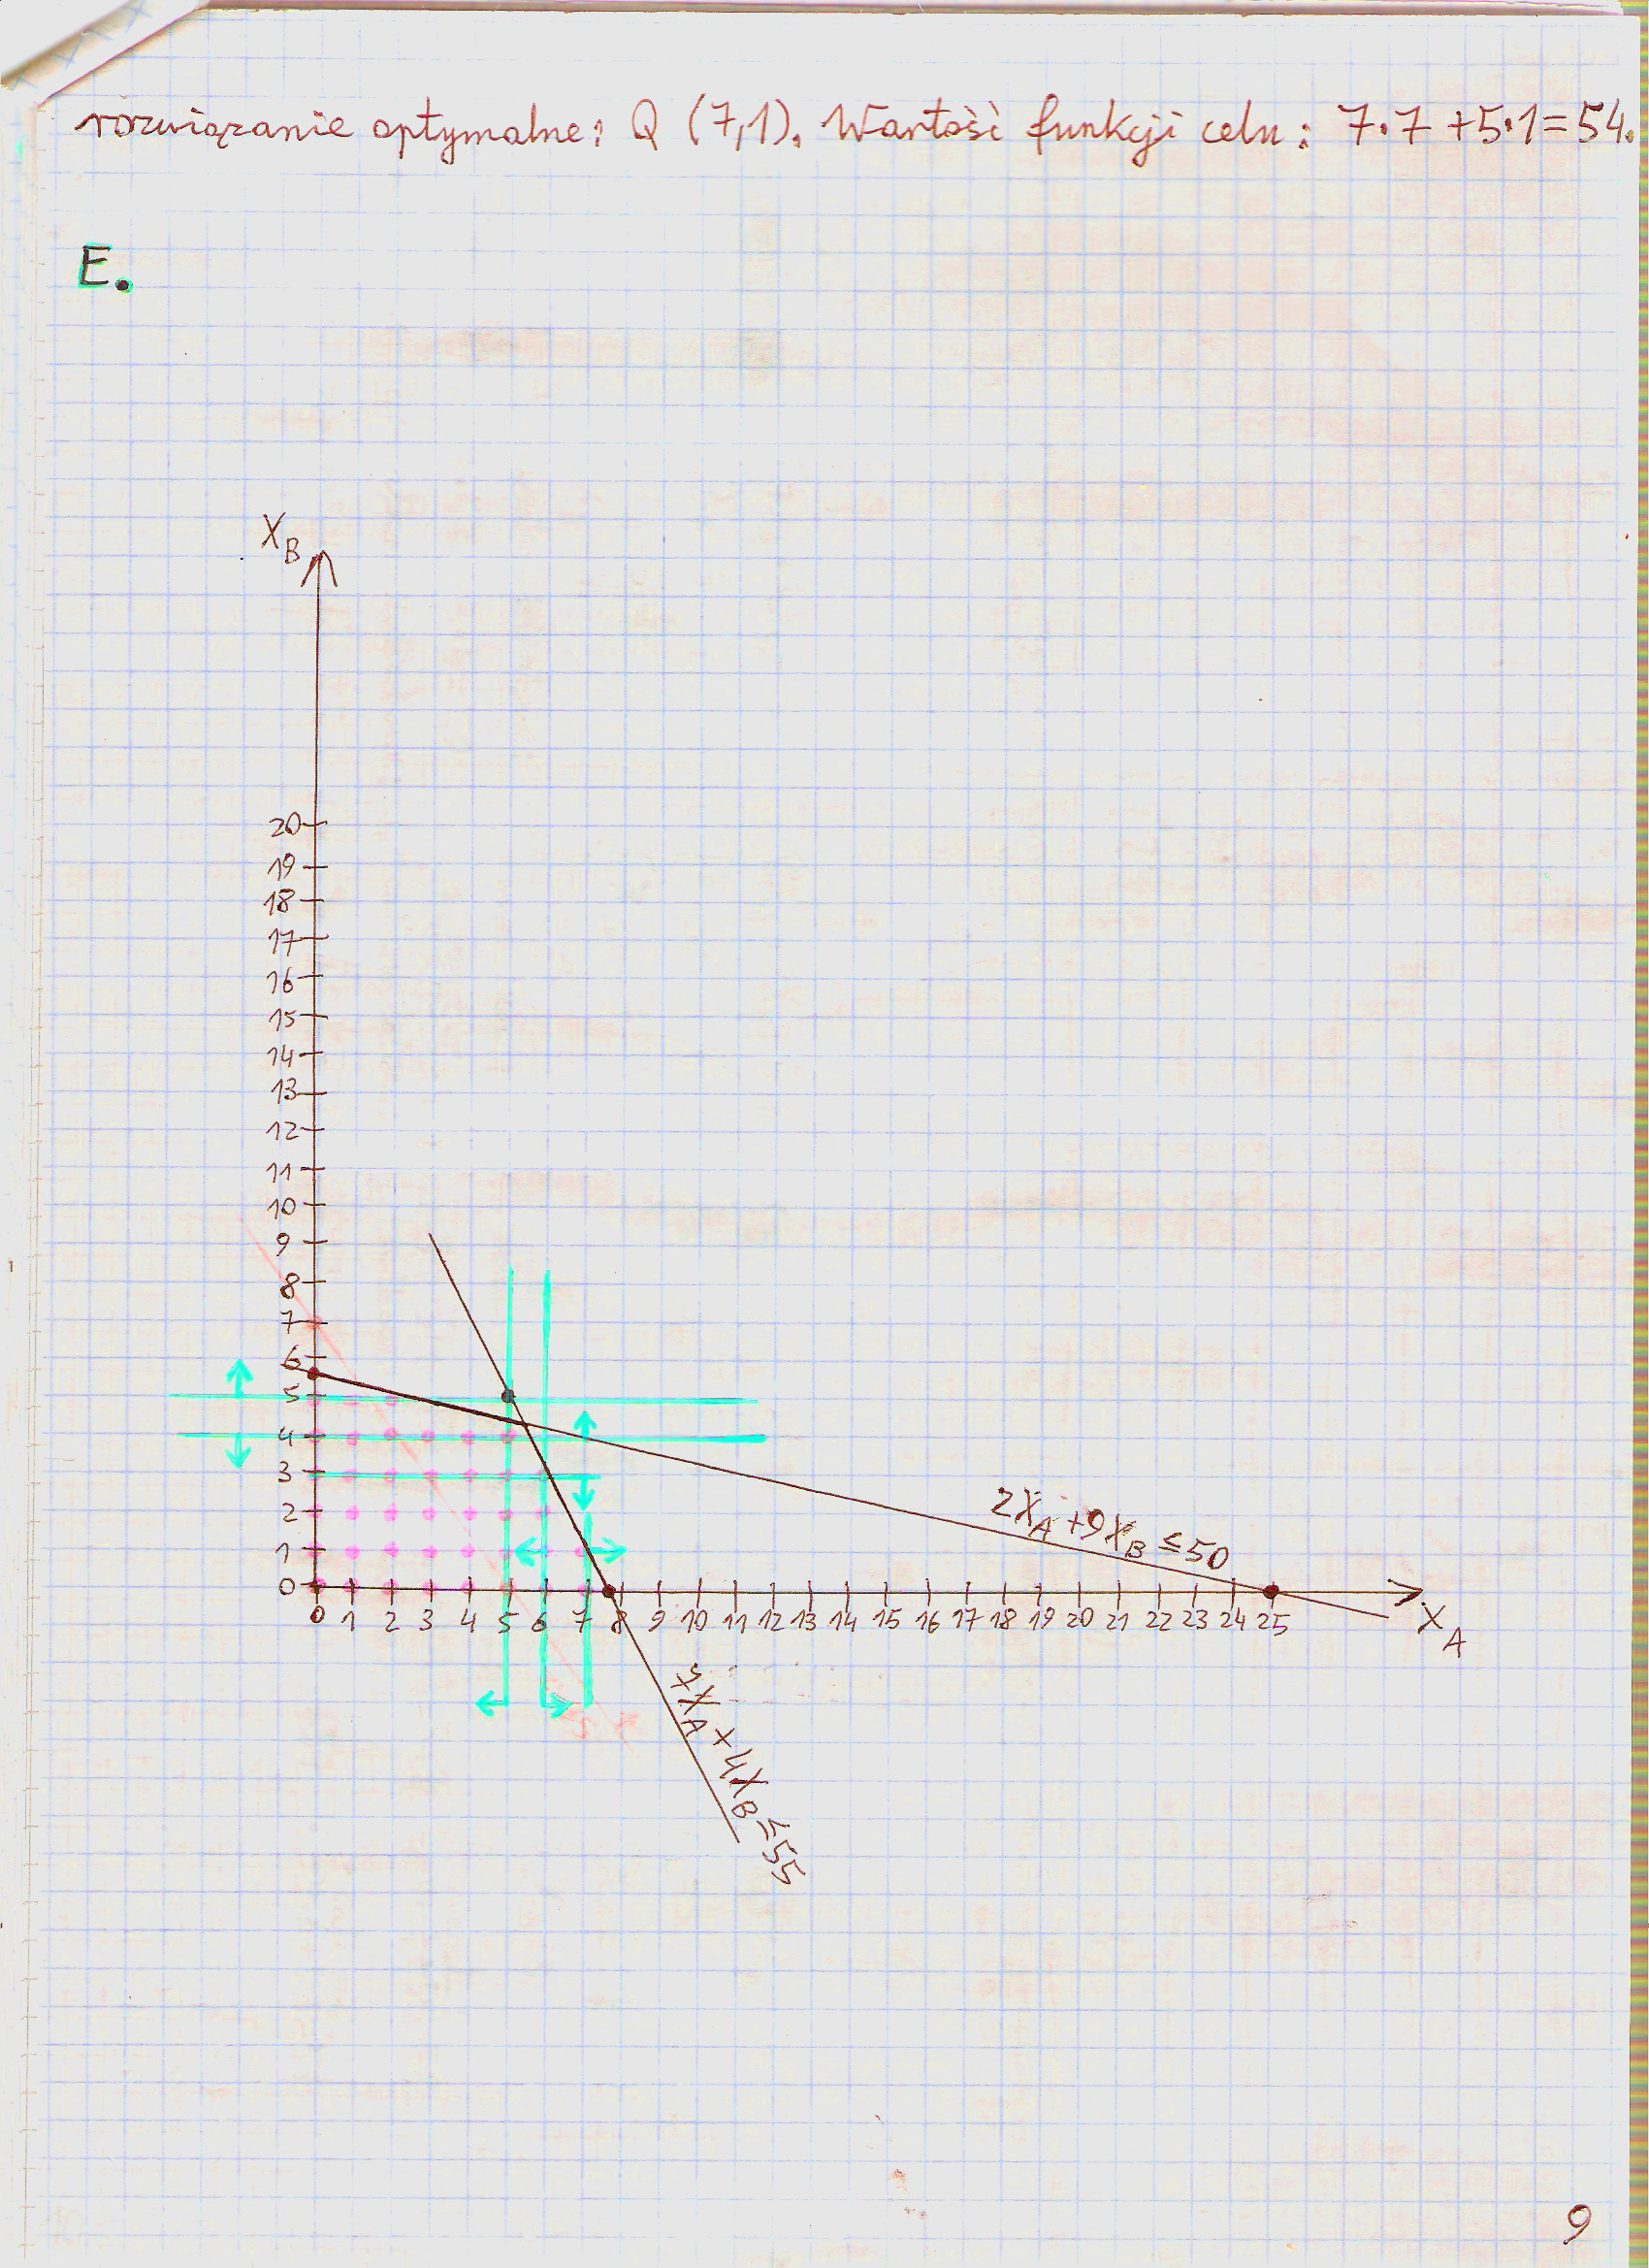 rozwiązanie optymalne: Q (7,1). Wartość funkcji celu: 7·7 +5·1=54.
E.
X_B
20
19
18
17
16
15
14
13
12
11
10
9
8
7
6
5
4
3
2
1
0
2X_A+9X_B ≤50
0 1 2 3 4 5 6 7 8 9 10 11 12 13 14 15 16 17 18 19 20 21 22 23 24 25
X_A
7X_A+4X_B≤55
9